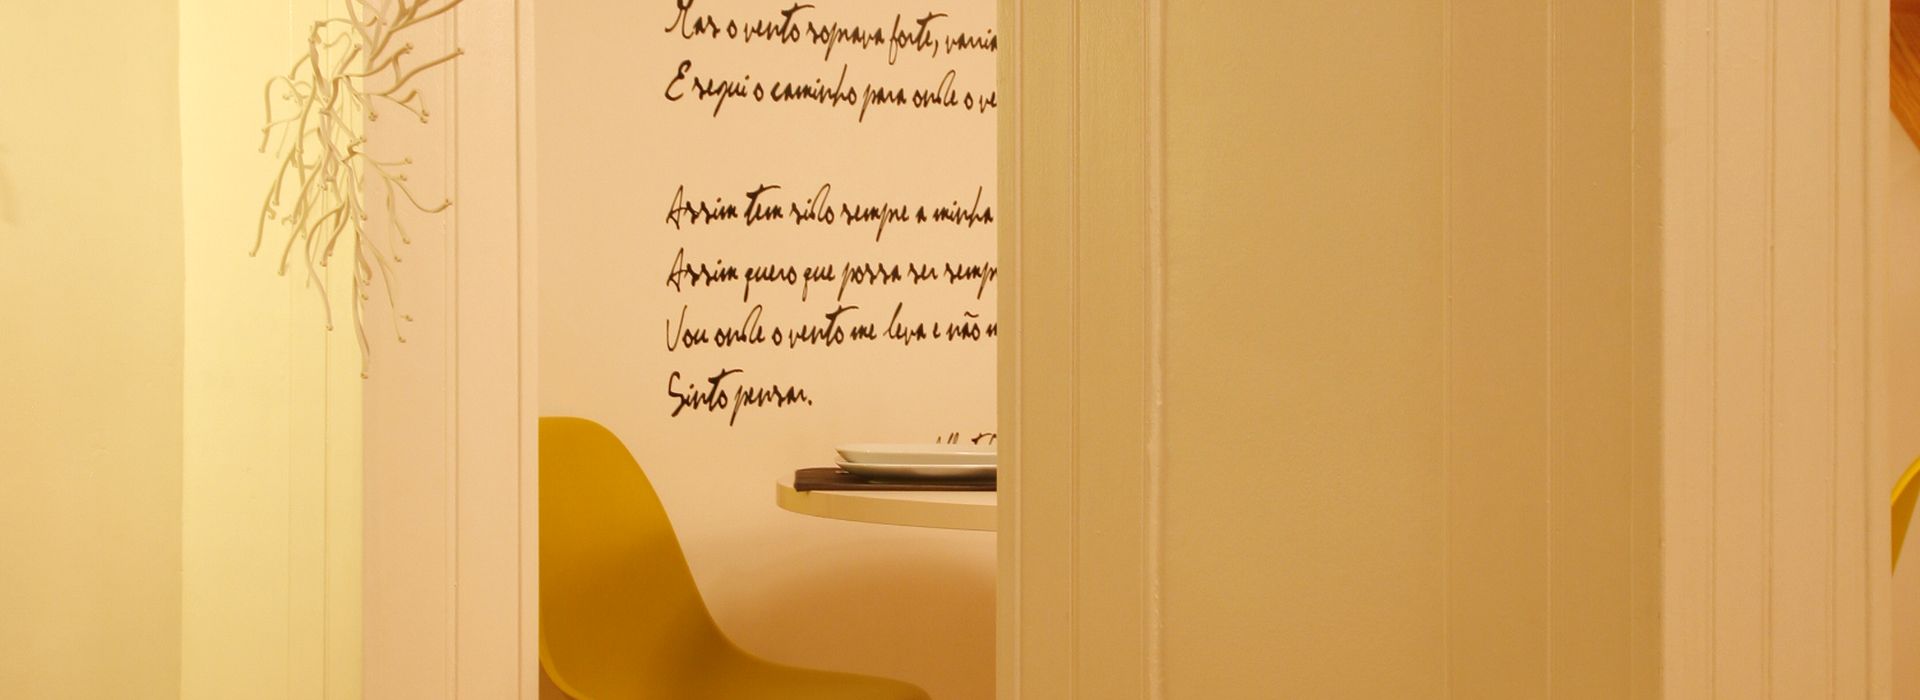 Mas o vento soprava forte, varria
E segui o caminho para onde o ve
Assim tem sido sempre a minha
Assim quero que possa ser semp
Vou onde o vento me leva e não m
Sinto pensar.